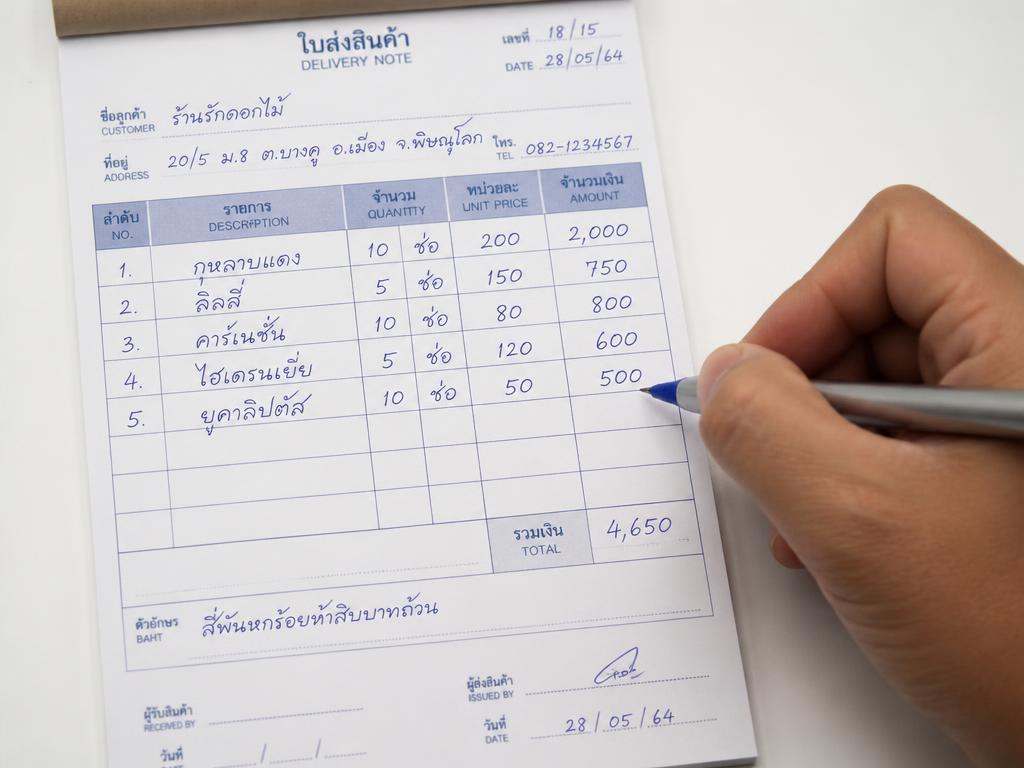 ใบส่งสินค้า
DELIVERY NOTE
เลขที่ 18/15
DATE 28/05/64
ชื่อลูกค้า ร้านรักดอกไม้
CUSTOMER
ที่อยู่ 20/5 ม.8 ต.บางคู อ.เมือง จ.พิษณุโลก โทร. 082-1234567
ADORESS TEL
ลำดับ รายการ จำนวน หน่วยละ จำนวนเงิน
NO. DESCRIPTION QUANTITY UNIT PRICE AMOUNT
1. กุหลาบแดง 10 ช่อ 200 2,000
2. ลิลสี่ 5 ช่อ 150 750
3. คาร์เนชั่น 10 ช่อ 80 800
4. ไฮเดรนเยี่ย 5 ช่อ 120 600
5. ยูคาลิปตัส 10 ช่อ 50 500
รวมเงิน 4,650
TOTAL
ตัวอักษร สี่พันหกร้อยห้าสิบบาทถ้วน
BAHT
ผู้รับสินค้า
RECEIVED BY
วันที่ / /
ผู้ส่งสินค้า
ISSUED BY
วันที่ 28 / 05 / 64
DATE